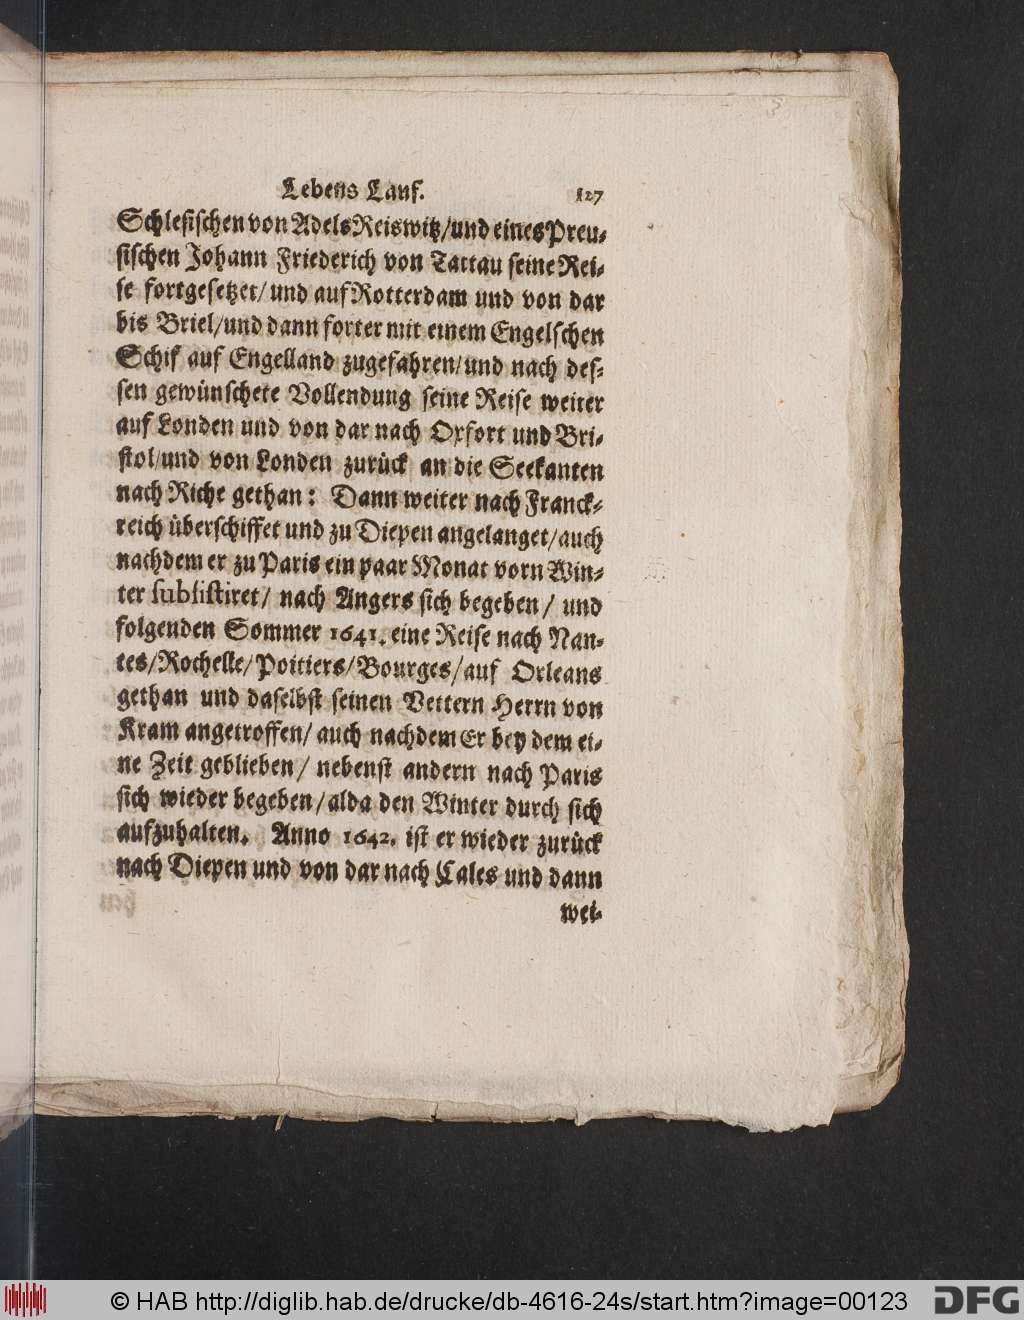 Lebens Lauf. 127
Schlesischen von Adels Reiswitz/und eines Preu-
sischen Johann Friederich von Tattau seine Rei-
se fortgesetzet/und auf Rotterdam und von dar
bis Briel/und dann forter mit einem Engelschen
Schif auf Engelland zugefahren/und nach des-
sen gewünschete Vollendung seine Reise weiter
auf Londen und von dar nach Oxfort und Bri-
stol/und von Londen zurück an die Seekanten
nach Riche gethan: Dann weiter nach Franck-
reich überschiffet und zu Diepen angelanget/auch
nachdem er zu Paris ein paar Monat vorn Win-
ter subsistiret/ nach Angers sich begeben/ und
folgenden Sommer 1641. eine Reise nach Nan-
tes/Rochelle/Poitiers/Bourges/auf Orleans
gethan und daselbst seinen Vettern Herrn von
Kram angetroffen/ auch nachdem Er bey dem ei-
ne Zeit geblieben/ nebenst andern nach Paris
sich wieder begeben/alda den Winter durch sich
aufzuhalten. Anno 1642. ist er wieder zurück
nach Diepen und von dar nach Cales und dann
wei-
© HAB http://diglib.hab.de/drucke/db-4616-24s/start.htm?image=00123
DFG